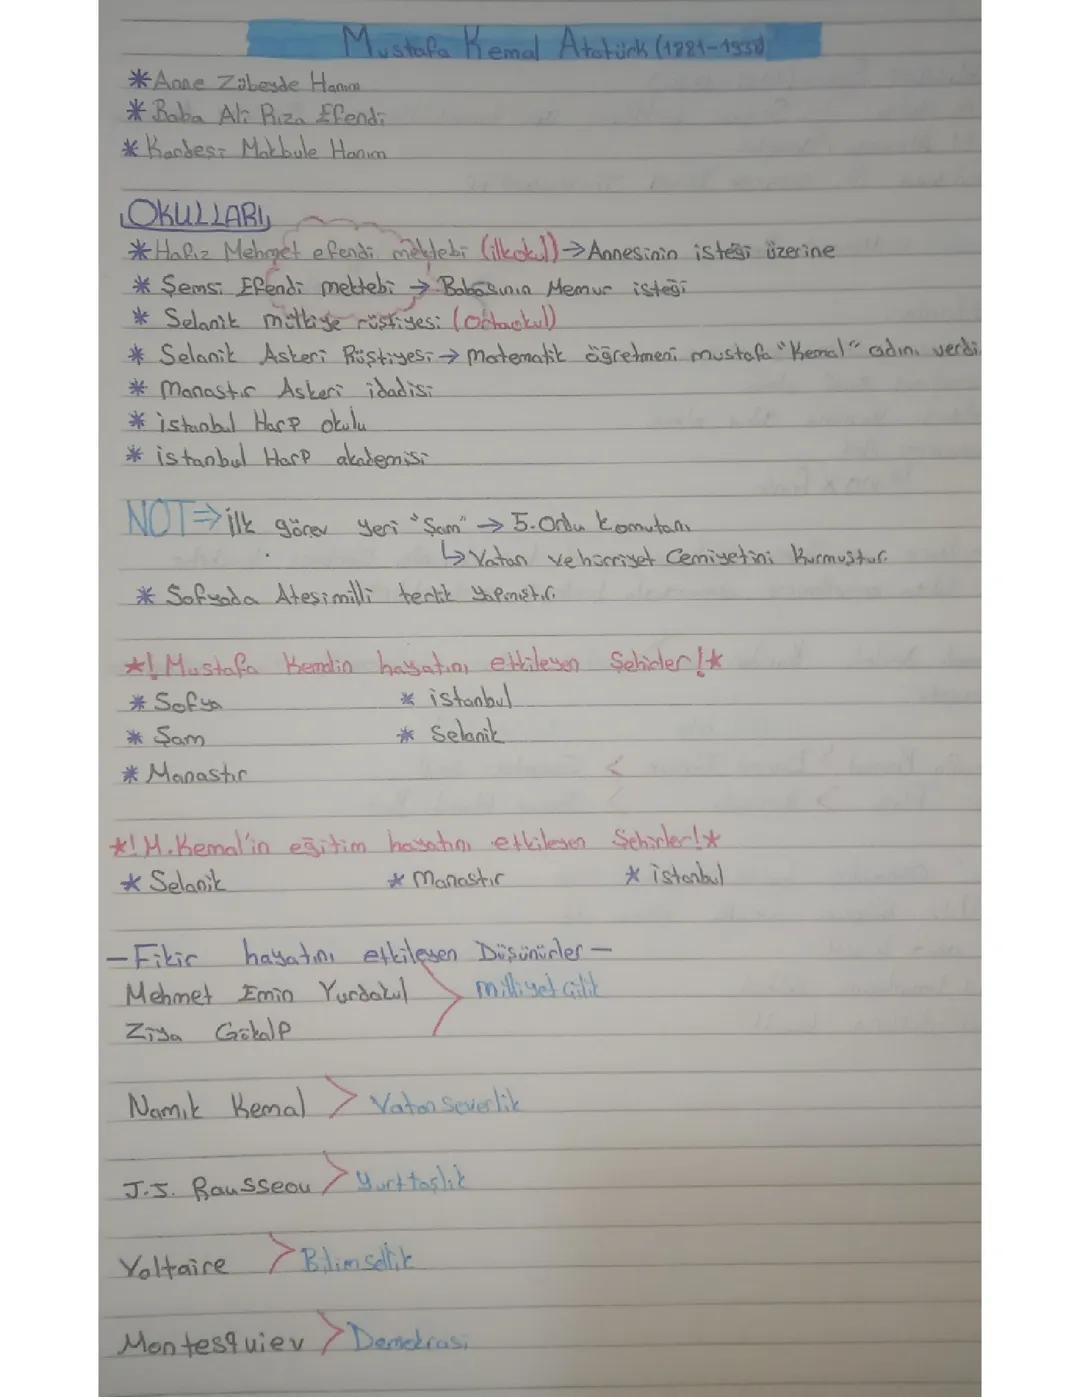 Mustafa Kemal Atatürk (1881-1938)
* Anne Zübeyde Hanım
* Baba Ali Rıza Efendi
* Kardeşi Makbule Hanım
OKULLARI
* Hafız Mehmet efendi mektebi (ilkokul) → Annesinin isteği üzerine
* Şemsi Efendi mektebi → Babasının Memur isteği
* Selanik mülkiye rüştiyesi (ortaokul)
* Selanik Askeri Rüştiyesi → matematik öğretmeni mustafa "Kemal" adını verdi.
* Manastır Askeri idadisi
* istanbul Harp okulu
* istanbul Harp akademisi
NOT ⇒ ilk görev yeri "Şam" → 5. Ordu komutanı
↳ Vatan ve hürriyet Cemiyetini kurmuştur.
* Sofyada Ateşimilli terlik yapmıştır.
*! Mustafa Kemalin hayatını etkileyen Şehirler !*
* Sofya * istanbul
* Şam * Selanik
* Manastır
*! M. Kemal'in eğitim hayatını etkileyen Şehirler!*
* Selanik * Manastır * istanbul
- Fikir hayatını etkileyen Düşünürler -
Mehmet Emin Yurdakul > milliyetçilik
Ziya Gökalp
Namık Kemal > Vatan Severlik
J.J. Rausseou > Yurttaşlık
Voltaire > Bilimsellik
Montesquiev > Demokrasi